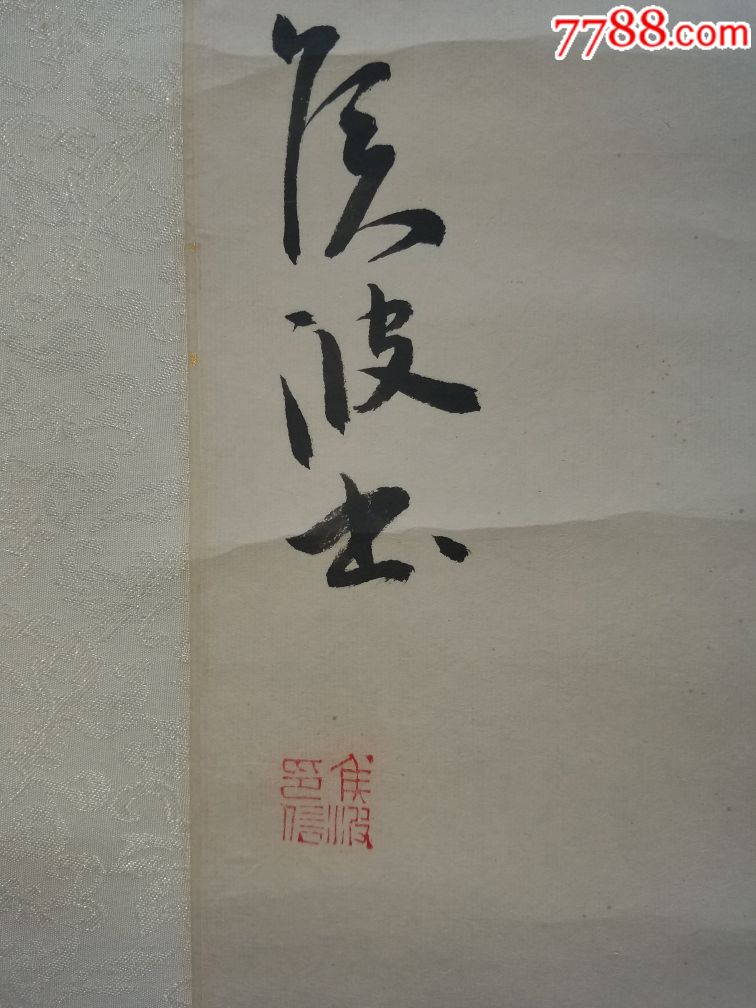 7788.com
侯波书
侯波
印信